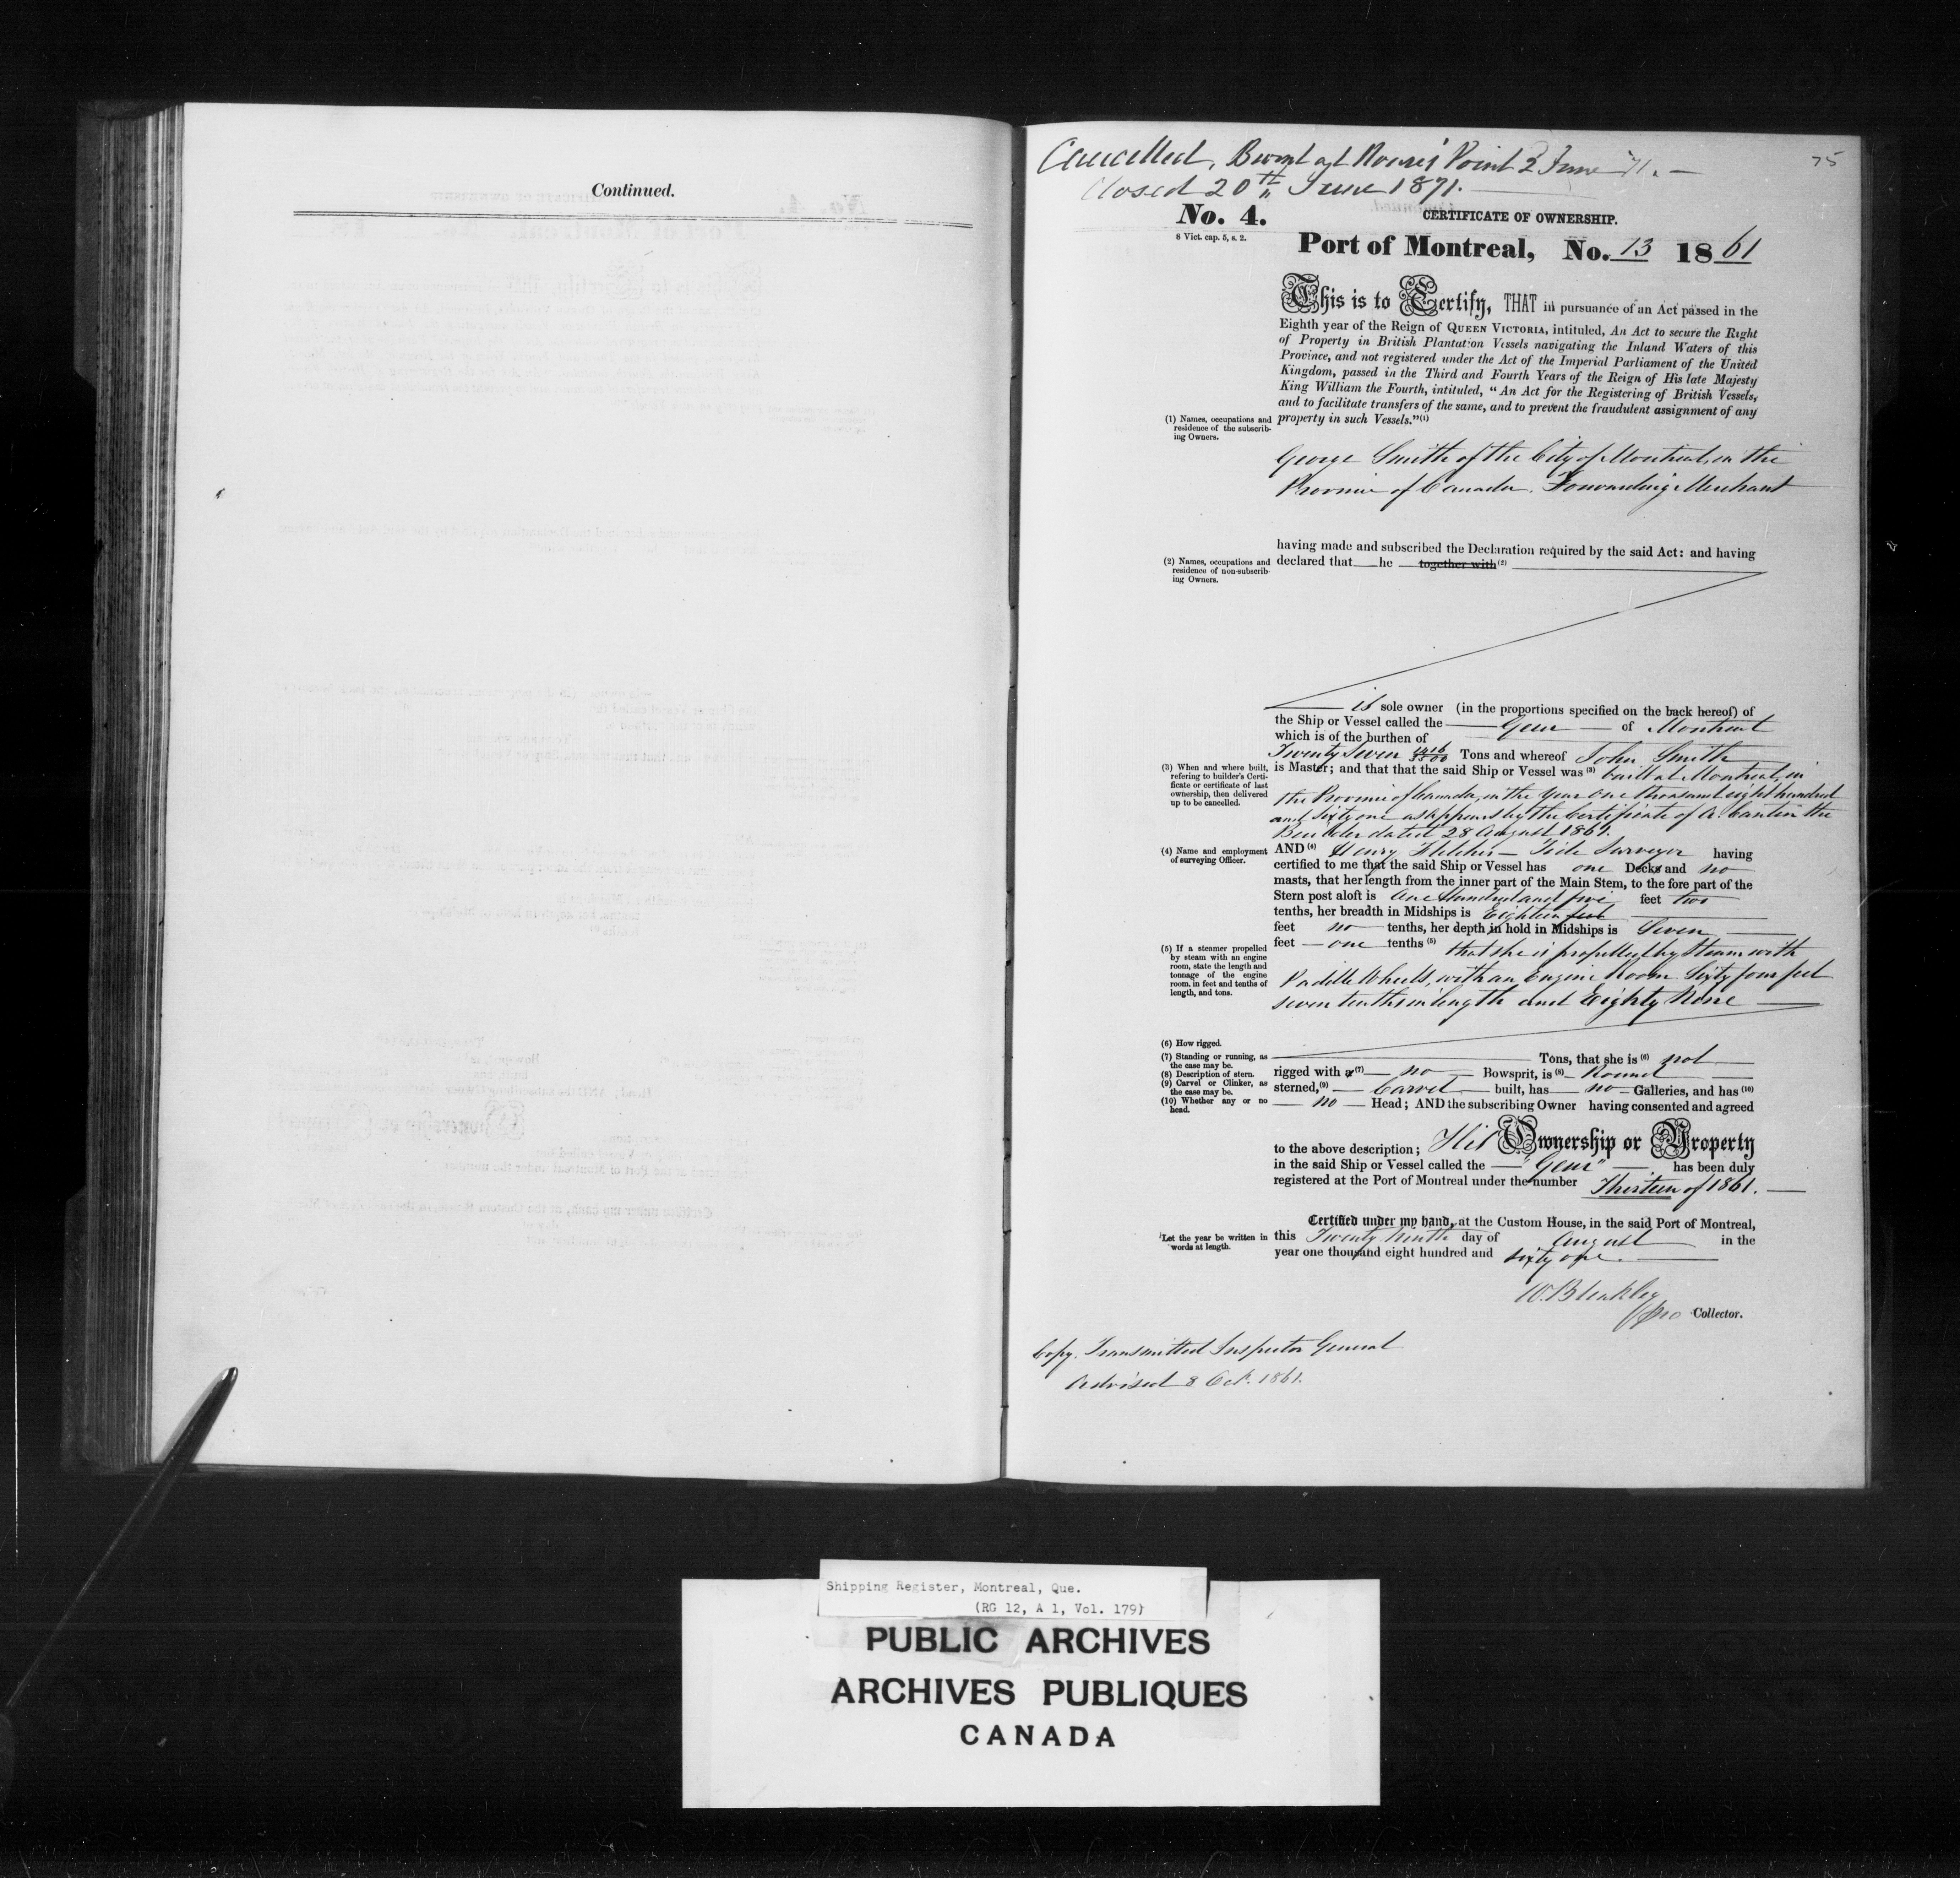 Continued.
Cancelled, Burnt at Rouses Point 2 June 71. —
Closed 20th June 1871.
75
No. 4.
8 Vict. cap. 5, s. 2.
CERTIFICATE OF OWNERSHIP.
Port of Montreal, No. 13 1861
This is to Certify, THAT in pursuance of an Act passed in the
Eighth year of the Reign of QUEEN VICTORIA, intituled, An Act to secure the Right
of Property in British Plantation Vessels navigating the Inland Waters of this
Province, and not registered under the Act of the Imperial Parliament of the United
Kingdom, passed in the Third and Fourth Years of the Reign of His late Majesty
King William the Fourth, intituled, "An Act for the Registering of British Vessels,
and to facilitate transfers of the same, and to prevent the fraudulent assignment of any
property in such Vessels."(1)
(1) Names, occupations and
residence of the subscrib-
ing Owners.
George Smith of the City of Montreal, in the
Province of Canada, Forwarding Merchant
having made and subscribed the Declaration required by the said Act: and having
declared that he together with (2)
(2) Names, occupations and
residence of non-subscrib-
ing Owners.
is sole owner (in the proportions specified on the back hereof) of
the Ship or Vessel called the — Gem — of Montreal
which is of the burthen of
Twenty Seven 1416/3500 Tons and whereof John Smith
is Master; and that that the said Ship or Vessel was (3) built at Montreal, in
the Province of Canada, in the Year One thousand eight hundred
and sixty one as appears by the Certificate of A. Cantin the
Builder dated 28 August 1861.
(3) When and where built,
refering to builder's Certi-
ficate or certificate of last
ownership, then delivered
up to be cancelled.
(4) Name and employment
of surveying Officer.
AND (4) Henry Fletcher — Tide Surveyor having
certified to me that the said Ship or Vessel has one Decks and no
masts, that her length from the inner part of the Main Stem, to the fore part of the
Stern post aloft is One Hundred and five feet two
tenths, her breadth in Midships is Eighteen feet
feet no tenths, her depth in hold in Midships is Seven
feet — one tenths (5) that she is propelled by Steam with
Paddle Wheels, with an Engine Room Sixty four feet
seven tenths in length and Eighty Nine
(5) If a steamer propelled
by steam with an engine
room, state the length and
tonnage of the engine
room, in feet and tenths of
length, and tons.
(6) How rigged.
(7) Standing or running, as
the case may be.
(8) Description of stern.
(9) Carvel or Clinker, as
the case may be.
(10) Whether any or no
head.
Tons, that she is (6) not
rigged with a (7) — no — Bowsprit, is (8) — Round
sterned, (9) — Carvel — built, has — no — Galleries, and has (10)
— no — Head; AND the subscribing Owner having consented and agreed
to the above description; His Ownership or Property
in the said Ship or Vessel called the — "Gem" — has been duly
registered at the Port of Montreal under the number Thirteen of 1861.
Certified under my hand, at the Custom House, in the said Port of Montreal,
this Twenty Ninth day of August in the
year one thousand eight hundred and sixty one.
Let the year be written in
words at length.
W. Bleakley
pro Collector.
Copy. Transmitted Inspector General
Advised 8 Oct. 1861.
Shipping Register, Montreal, Que.
(RG 12, A 1, Vol. 179)
PUBLIC ARCHIVES
ARCHIVES PUBLIQUES
CANADA